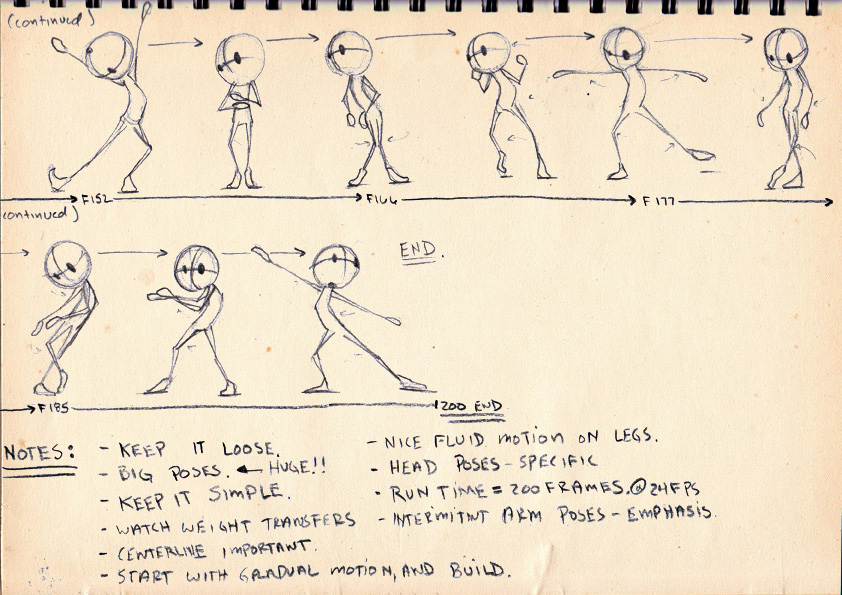 (continued)
F152
F166
F177
continued)
END.
F185
200 END
NOTES:
- KEEP IT LOOSE.
- BIG POSES. ← HUGE!!
- KEEP IT SIMPLE.
- WATCH WEIGHT TRANSFERS
- CENTERLINE IMPORTANT.
- START WITH GRADUAL MOTION, AND BUILD.
- NICE FLUID MOTION ON LEGS.
- HEAD POSES - SPECIFIC
- RUN TIME = 200 FRAMES. @ 24FPS
- INTERMITINT ARM POSES - EMPHASIS.